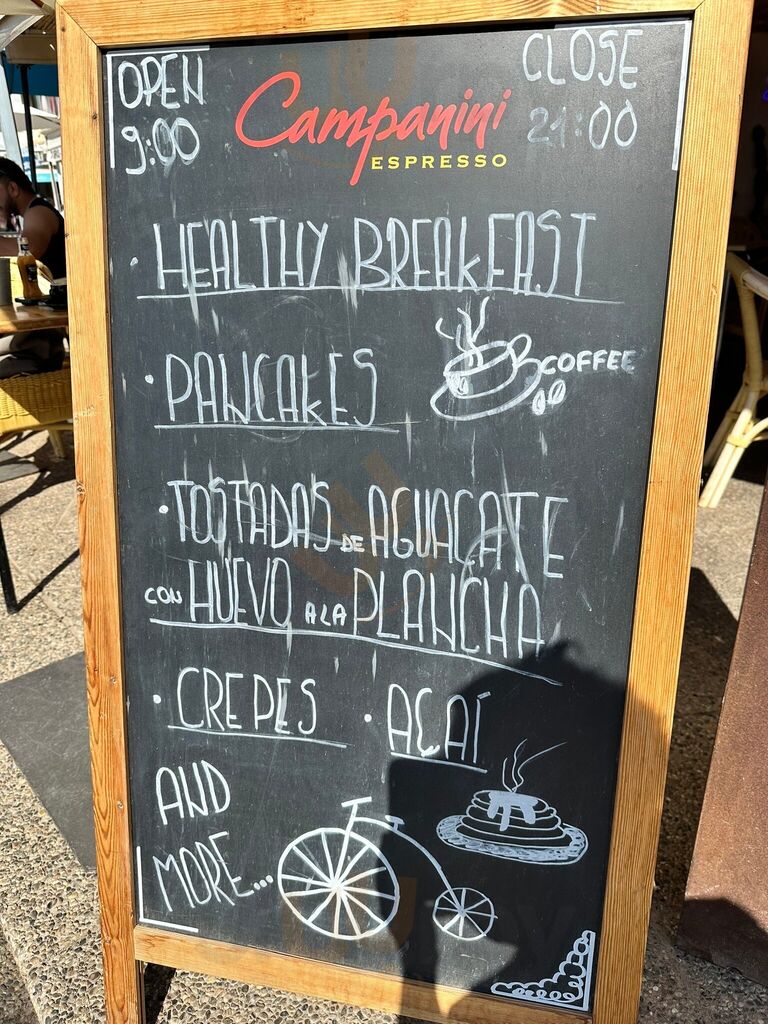 OPEN
9:00
Campanini
ESPRESSO
CLOSE
21:00
· HEALTHY BREAKFAST
· PANCAKES
COFFEE
· TOSTADAS DE AGUACATE
CON HUEVO A LA PLANCHA
· CREPES · AÇAÍ
AND
MORE...